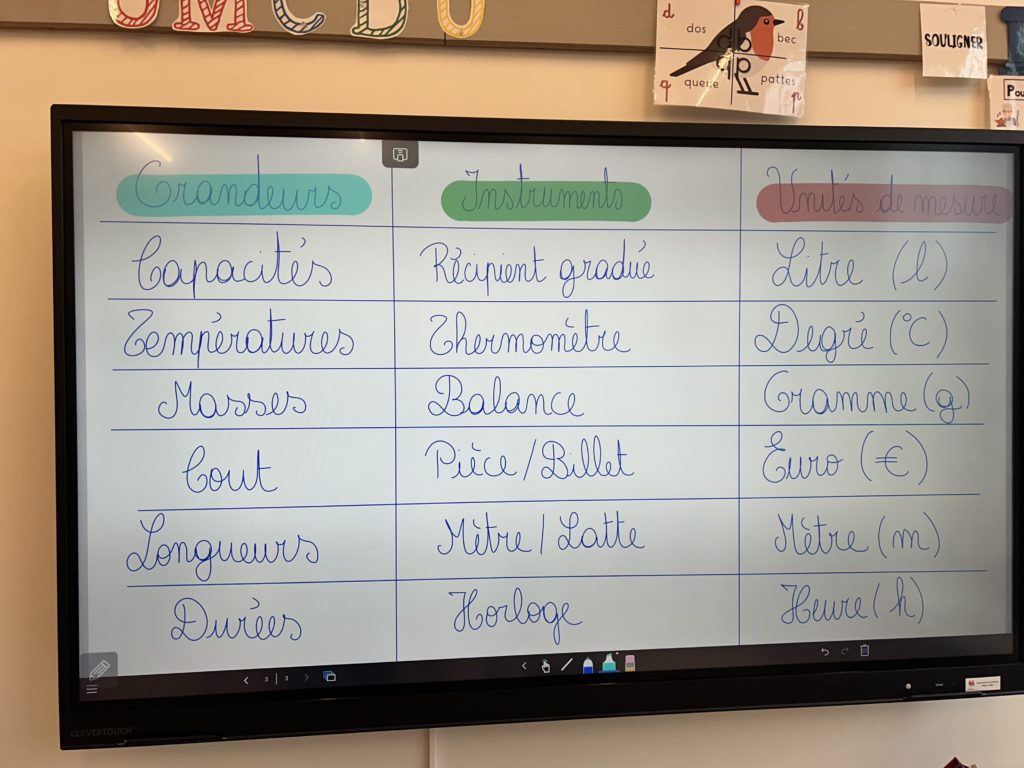 OMCDU
d
b
dos
bec
db
qp
queue
pattes
q
p
SOULIGNER
Pou
Grandeurs Instruments Unités de mesure
Capacités Récipient gradué Litre (l)
Températures Thermomètre Degré (°C)
Masses Balance Gramme (g)
Cout Pièce/Billet Euro (€)
Longueurs Mètre/Latte Mètre (m)
Durées Horloge Heure (h)
3 | 3
CLEVERTOUCH